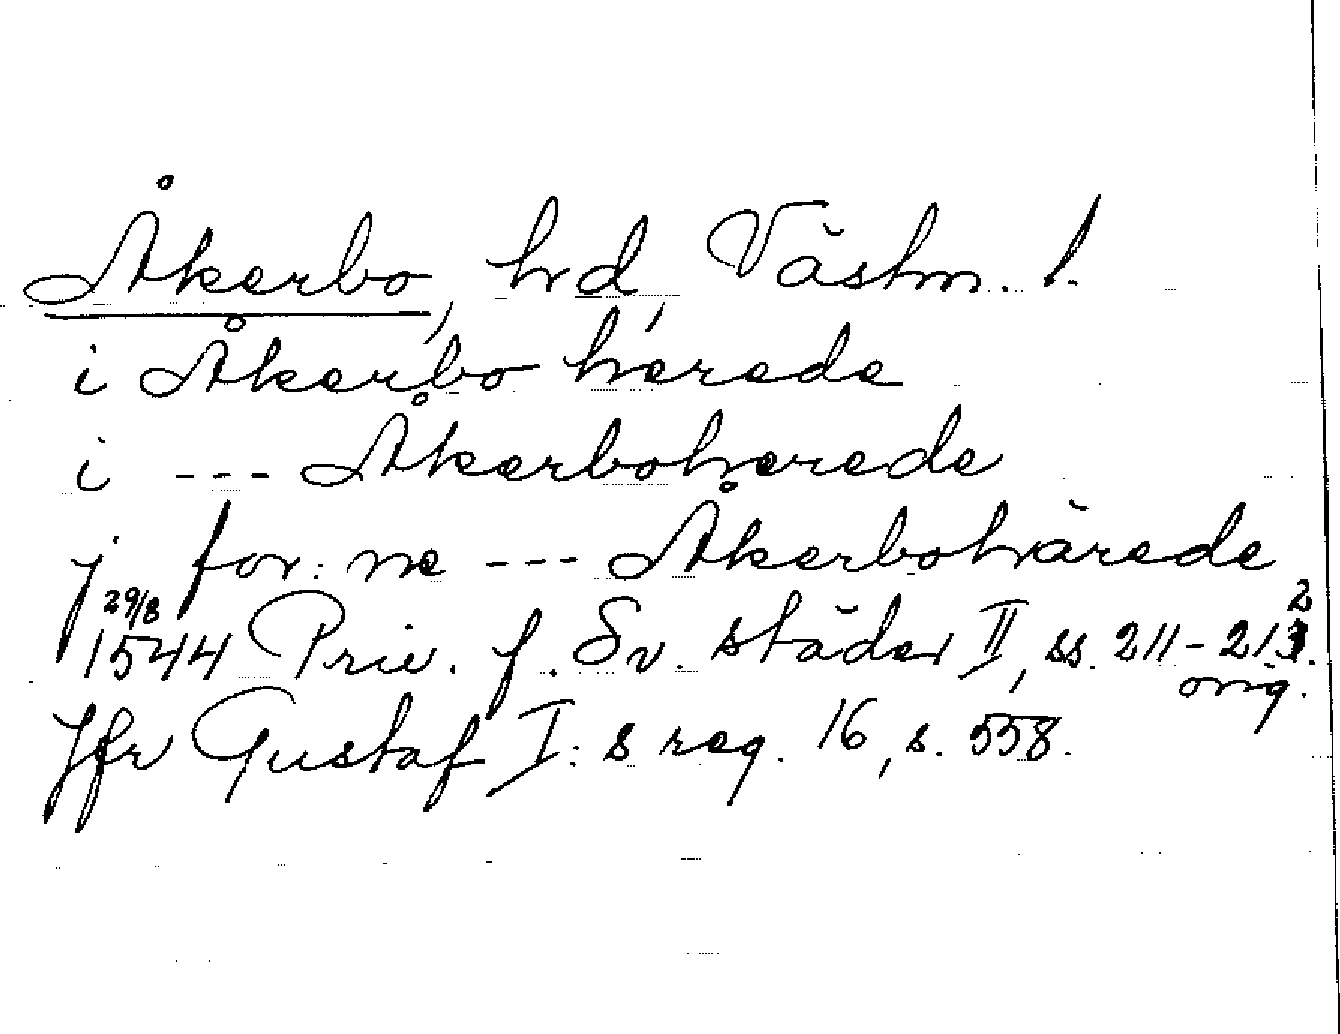 Åkerbo, hrd, Västm. l.
i Åkerbo herede
i --- Åkerboherede
j för: ne --- Åkerbohärede
29/8 1544 Priv. f. Sv. städer II, ss. 211-212. orig.
Jfr Gustaf I: s reg. 16, s. 558.